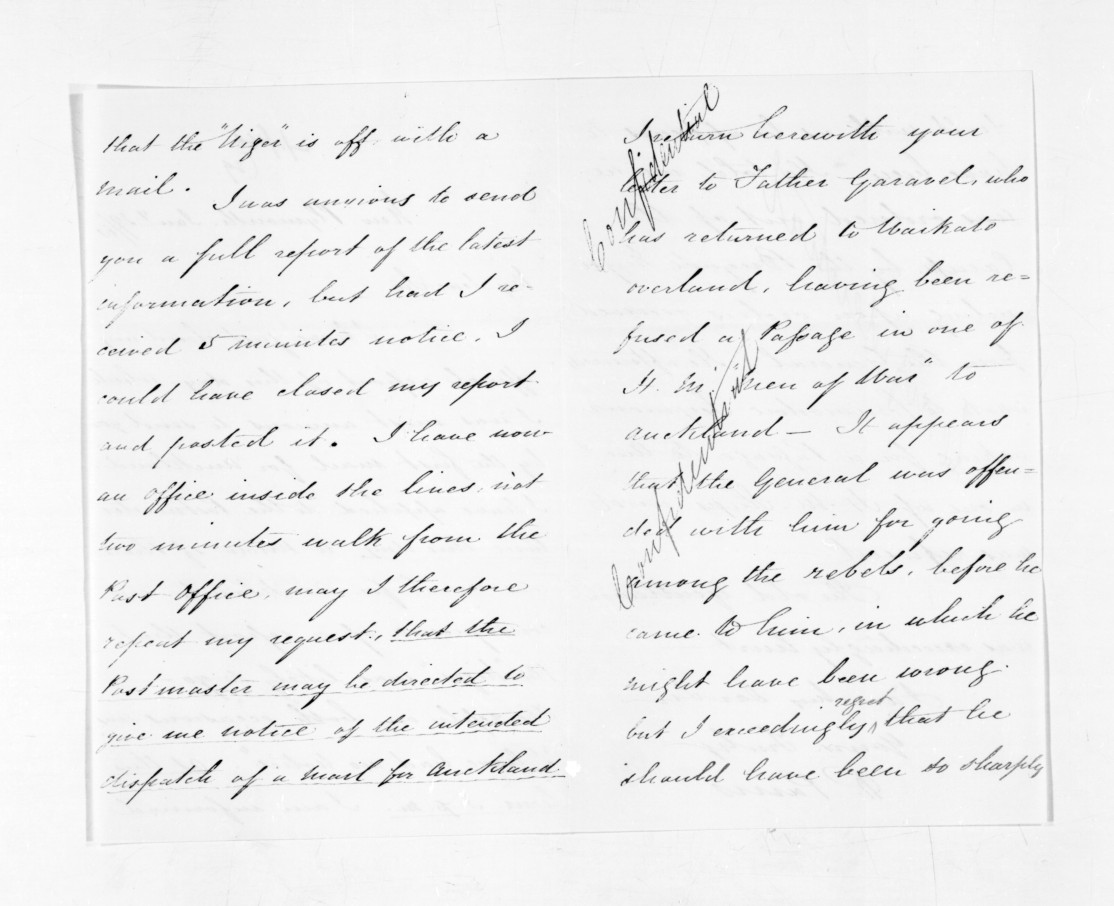 that the "Niger" is off with a
mail.
I was anxious to send
you a full report of the latest
information, but had I re-
ceived 5 minutes notice, I
could have closed my report
and posted it. I have now
an office inside the lines, not
two minutes walk from the
Post Office, may I therefore
repeat my request, that the
Postmaster may be directed to
give me notice of the intended
dispatch of a mail for Auckland.
Confidential
Confidential
I return herewith your
letter to Father Garavel, who
has returned to Waikato
overland, having been re=
fused a Passage in one of
H. M. "Men of War" to
Auckland — It appears
that the General was offen=
ded with him for going
among the rebels, before he
came to him, in which he
might have been wrong.
but I exceedingly regret that he
should have been so sharply